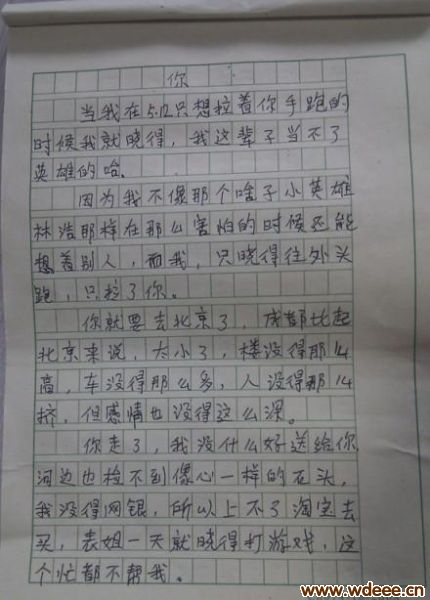 你
当我在5.12只想拉着你手跑的
时候我就晓得，我这辈子当不了
英雄的哈。
因为我不像那个啥子小英雄
林浩那样在那么害怕的时候还能
想着别人，而我，只晓得往外头
跑，只拉了你。
你就要去北京了，成都比起
北京来说，太小了，楼没得那么
高，车没得那么多，人没得那么
挤，但感情也没得这么深。
你走了，我没什么好送给你
河边也捡不到像心一样的石头，
我没得网银，所以上不了淘宝去
买，表姐一天就晓得打游戏，这
个忙都不帮我。
www.wdeee.cn